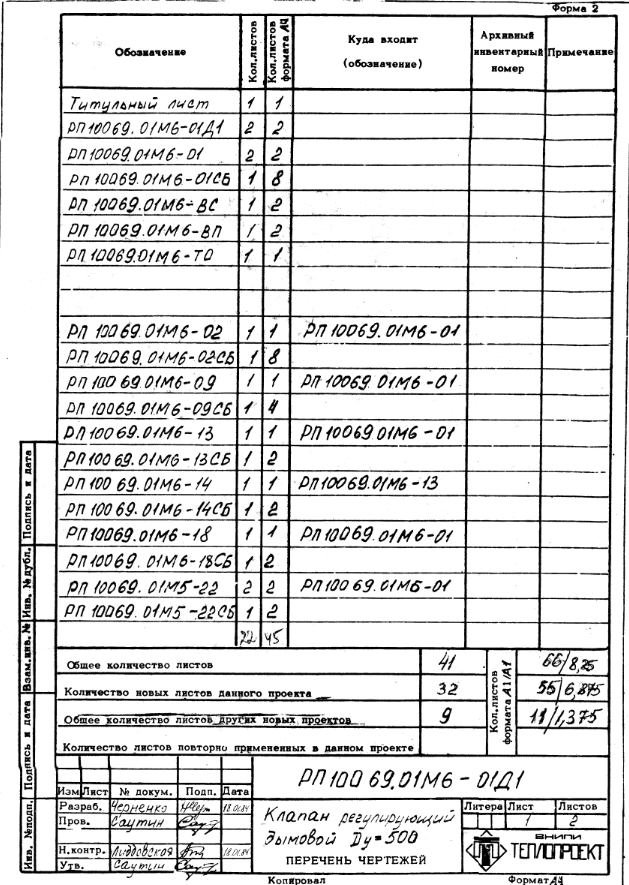 Форма 2
Обозначение Кол.листов Кол.листов формата А4 Куда входит (обозначение) Архивный инвентарный номер Примечание
Титульный лист 1 1
РП10069.01М6-01Д1 2 2
РП10069.01М6-01 2 2
РП 10069.01М6-01СБ 1 8
РП 10069.01М6-ВС 1 2
РП 10069.01М6-ВП 1 2
РП 10069.01М6-ТО 1 1
РП 10069.01М6-02 1 1 РП 10069.01М6-01
РП 10069.01М6-02СБ 1 8
РП 10069.01М6-09 1 1 РП 10069.01М6-01
РП 10069.01М6-09СБ 1 4
РП 10069.01М6-13 1 1 РП 10069.01М6-01
РП 10069.01М6-13СБ 1 2
РП 10069.01М6-14 1 1 РП 10069.01М6-13
РП 10069.01М6-14СБ 1 2
РП 10069.01М6-18 1 1 РП 10069.01М6-01
РП 10069.01М6-18СБ 1 2
РП 10069.01М5-22 2 2 РП 10069.01М5-01
РП 10069.01М5-22СБ 1 2
22 45
Общее количество листов 41 66/8,25
Количество новых листов данного проекта 32 55/6,875
Общее количество листов других новых проектов 9 11/1,375
Количество листов повторно примененных в данном проекте
Кол.листов формата А1/А4
РП 10069.01М6-01Д1
Изм Лист № докум. Подп. Дата
Разраб. Черненко 18.01.84
Пров. Саутин
Н.контр. 18.01.84
Утв. Саутин
Клапан регулирующий
дымовой Ду=500
ПЕРЕЧЕНЬ ЧЕРТЕЖЕЙ
Литера Лист Листов
1 2
ВНИПИ
ТЕПЛОПРОЕКТ
Копировал Формат А4
Инв. №подл. Подпись и дата Взам.инв. № Инв. №дубл. Подпись и дата